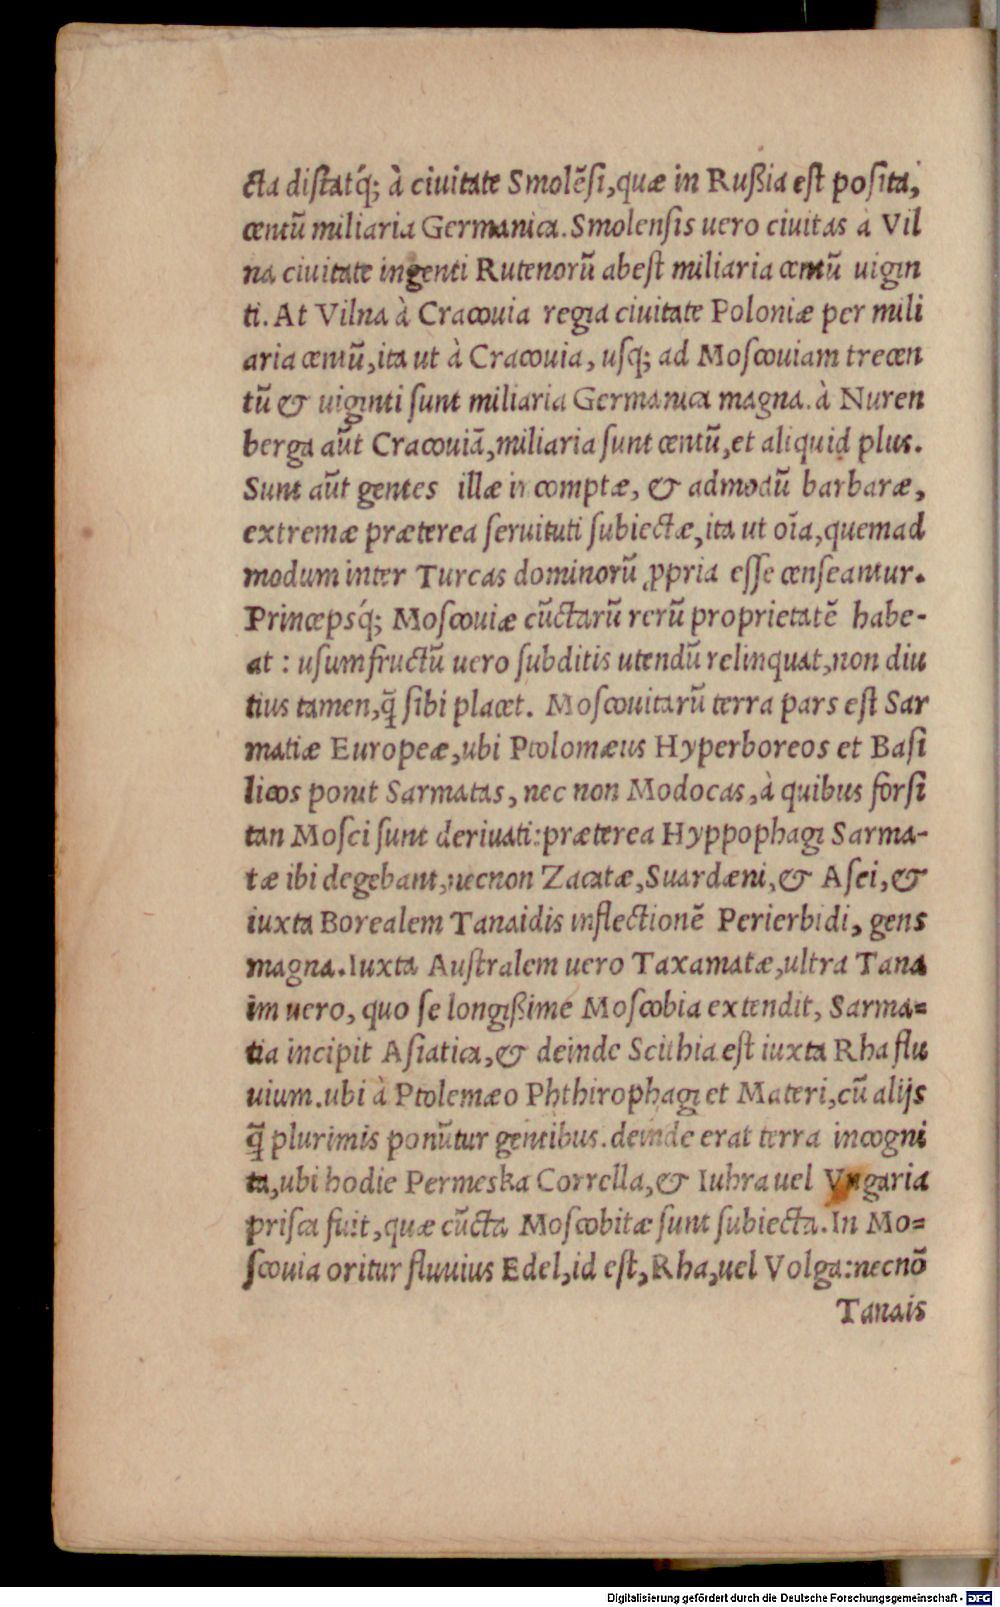 cta distatq́; à ciuitate Smolēsi, quæ in Rußia est posita,
centū miliaria Germanica. Smolensis uero ciuitas a Vil
na ciuitate ingenti Rutenorū abest miliaria centū uigin
ti. At Vilna à Cracouia regia ciuitate Poloniæ per mili
aria centū, ita ut à Cracouia, usq; ad Moscouiam trecen
tū & uiginti sunt miliaria Germanica magna. à Nuren
berga aūt Cracouiā, miliaria sunt centū, et aliquid plus.
Sunt aūt gentes illæ incomptæ, & admodū barbaræ,
extremæ præterea seruituti subiectæ, ita ut oīa, quemad
modum inter Turcas dominorū ꝓpria esse censeantur.
Princepsq́; Moscouiæ cūctarū rerū proprietatē habe-
at : usumfructū uero subditis utendū relinquat, non diu
tius tamen, q̄ sibi placet. Moscouitarū terra pars est Sar
matiæ Europeæ, ubi Ptolomæus Hyperboreos et Basi
licos ponit Sarmatas, nec non Modocas, à quibus forsi
tan Mosci sunt deriuati: præterea Hyppophagi Sarma-
tæ ibi degebant, necnon Zacatæ, Suardæni, & Asei, &
iuxta Borealem Tanaidis inflectionē Perierbidi, gens
magna. Iuxta Australem uero Taxamatæ, ultra Tana
im uero, quo se longißime Moscobia extendit, Sarma=
tia incipit Asiatica, & deinde Scithia est iuxta Rha flu
uium. ubi à Ptolemæo Phthirophagi et Materi, cū alijs
q̄ plurimis ponūtur gentibus. deinde erat terra incogni
ta, ubi hodie Permeska Corrella, & Iuhra uel Vngaria
prisca fuit, quæ cūcta Moscobitæ sunt subiecta. In Mo=
scouia oritur fluuius Edel, id est, Rha, uel Volga: necnō
Tanais
Digitalisierung gefördert durch die Deutsche Forschungsgemeinschaft - DFG